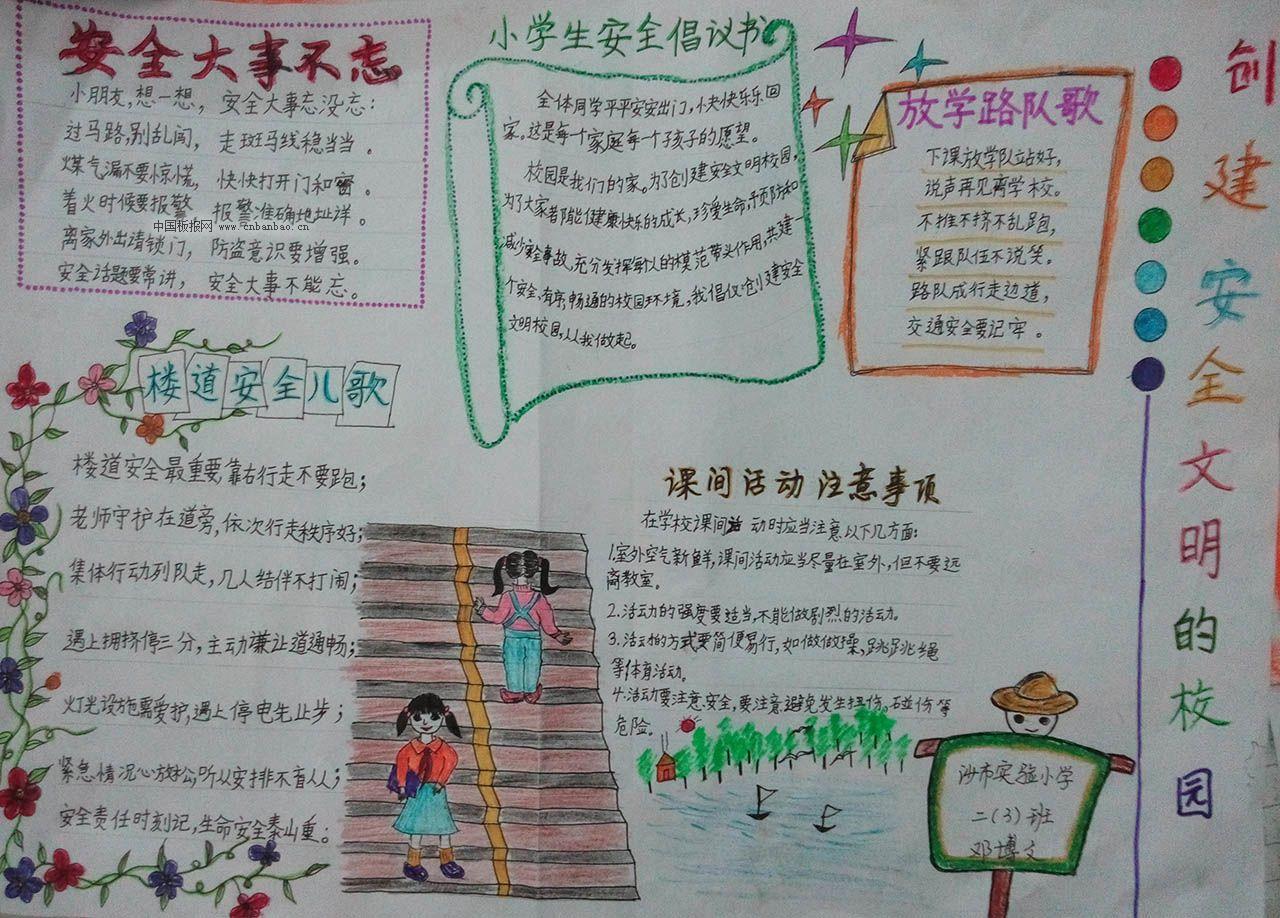 安全大事不忘
小朋友,想一想, 安全大事忘没忘:
过马路,别乱闯, 走斑马线稳当当。
煤气漏不要惊慌, 快快打开门和密。
着火时候要报警 报警准确地址详。
中国板报网 www.cnbanbao.cn
离家外出请锁门, 防盗意识要增强。
安全话题要常讲, 安全大事不能忘。
小学生安全倡议书
全体同学平平安安出门,快快乐乐回
家。这是每个家庭每个子孩子的愿望。
校园是我们的家。为了创建安全文明校园,
为了大家都能健康快乐的成长,珍爱生命,于页防和
减少安全事故,充分发挥每人的模范带头作用,共建一
个安全,有序,畅通的校园环境。我倡仪创建安全
文明校园,从我做起。
放学路队歌
下课放学队站好,
说声再见离学校。
不推不挤不乱跑,
紧跟队伍不说笑。
路队成行走边道,
交通安全要记牢。
创建安全文明的校园
楼道安全儿歌
楼道安全最重要,靠右行走不要跑;
老师守护在道旁,依次行走秩序好;
集体行动列队走,几人结伴不打闹;
遇上拥挤停三分,主动谦让道通畅;
灯光设施需爱护,遇上停电先止步;
紧急情况心放松,听从安排不盲从;
安全责任时刻记,生命安全泰山重。
课间活动注意事项
在学校课间活动时应当注意以下几方面:
1.室外空气新鲜,课间活动应当尽量在室外,但不要远
离教室。
2.活动的强度要适当,不能做剧烈的活动。
3.活动的方式要简便易行,如做做操,跳跳绳
等体育活动。
4.活动要注意安全,要注意避免发生扭伤。碰伤等
危险。
沙市实验小学
二(3)班
邓博文